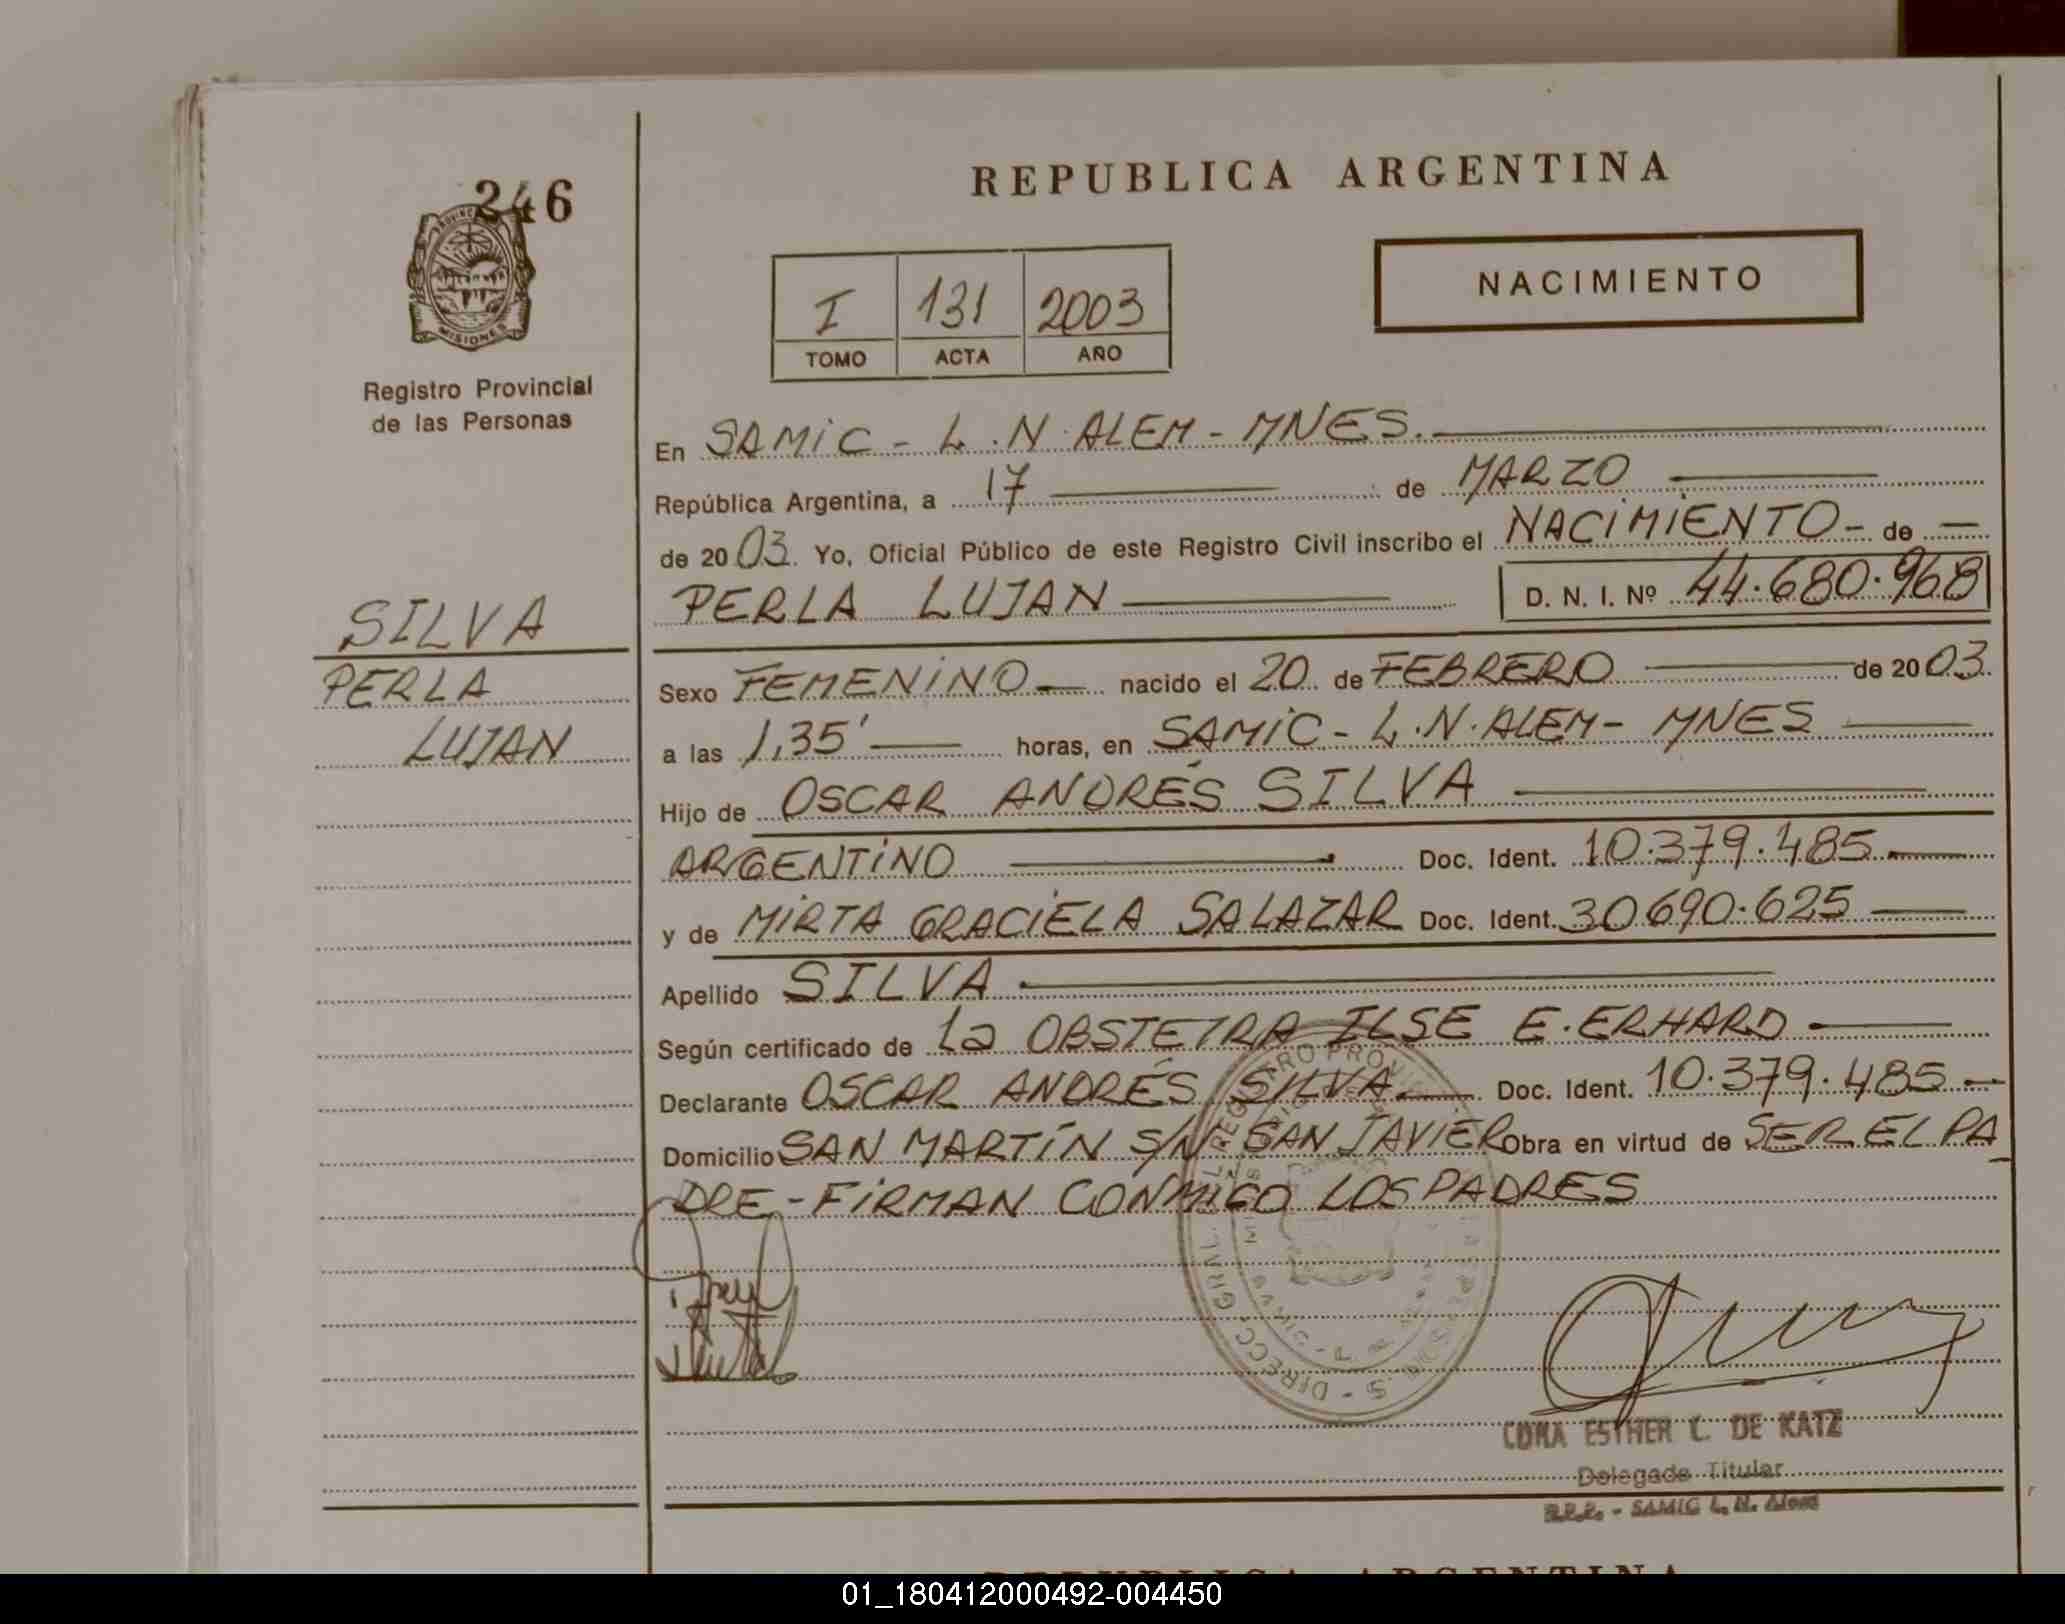 246
PROVINC
MISIONES
Registro Provincial
de las Personas
SILVA
PERLA
LUJAN
REPUBLICA ARGENTINA
NACIMIENTO
I 131 2003
TOMO ACTA AÑO
En SAMIC - L.N. ALEM - MNES.
República Argentina, a 17 de MARZO
de 2003. Yo, Oficial Público de este Registro Civil inscribo el NACIMIENTO - de -
PERLA LUJAN D. N. I. Nº 44.680.968
Sexo FEMENINO nacido el 20 de FEBRERO de 2003.
a las 1,35' horas, en SAMIC - L.N. ALEM - MNES
Hijo de OSCAR ANDRÉS SILVA
ARGENTINO Doc. Ident. 10.379.485
y de MIRTA GRACIELA SALAZAR Doc. Ident. 30690.625
Apellido SILVA
Según certificado de La OBSTETRA ILSE E. ERHARD
Declarante OSCAR ANDRÉS SILVA Doc. Ident. 10.379.485
Domicilio SAN MARTÍN S/N SAN JAVIER Obra en virtud de SER EL PA
DRE - FIRMAN CONMIGO LOS PADRES
ESTHER L. DE KATZ
Delegada Titular
SAMIC L. N. Alem
REPUBLICA ARGENTINA
01_180412000492-004450